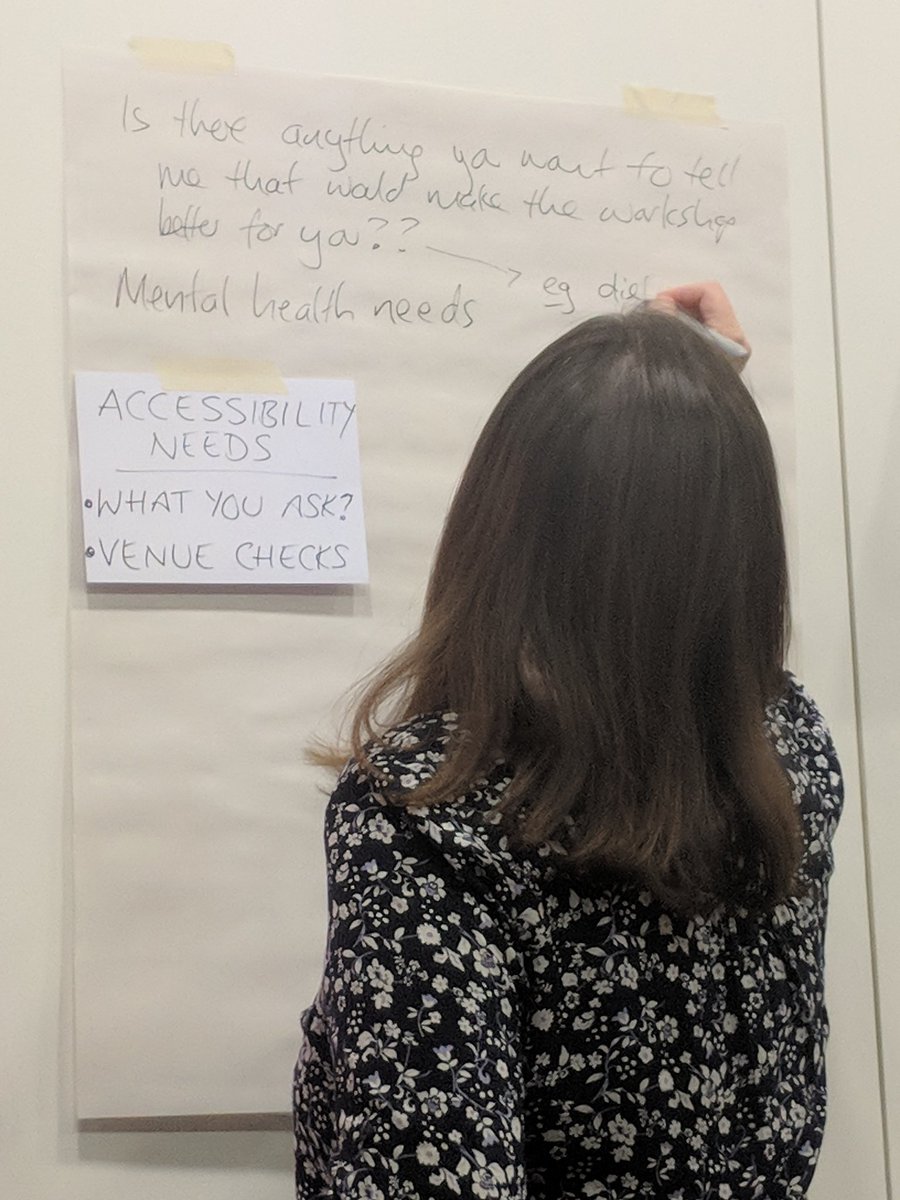 Is there anything you want to tell
me that would make the workshop
better for you??
eg diet
Mental health needs
ACCESSIBILITY
NEEDS
• WHAT YOU ASK?
• VENUE CHECKS